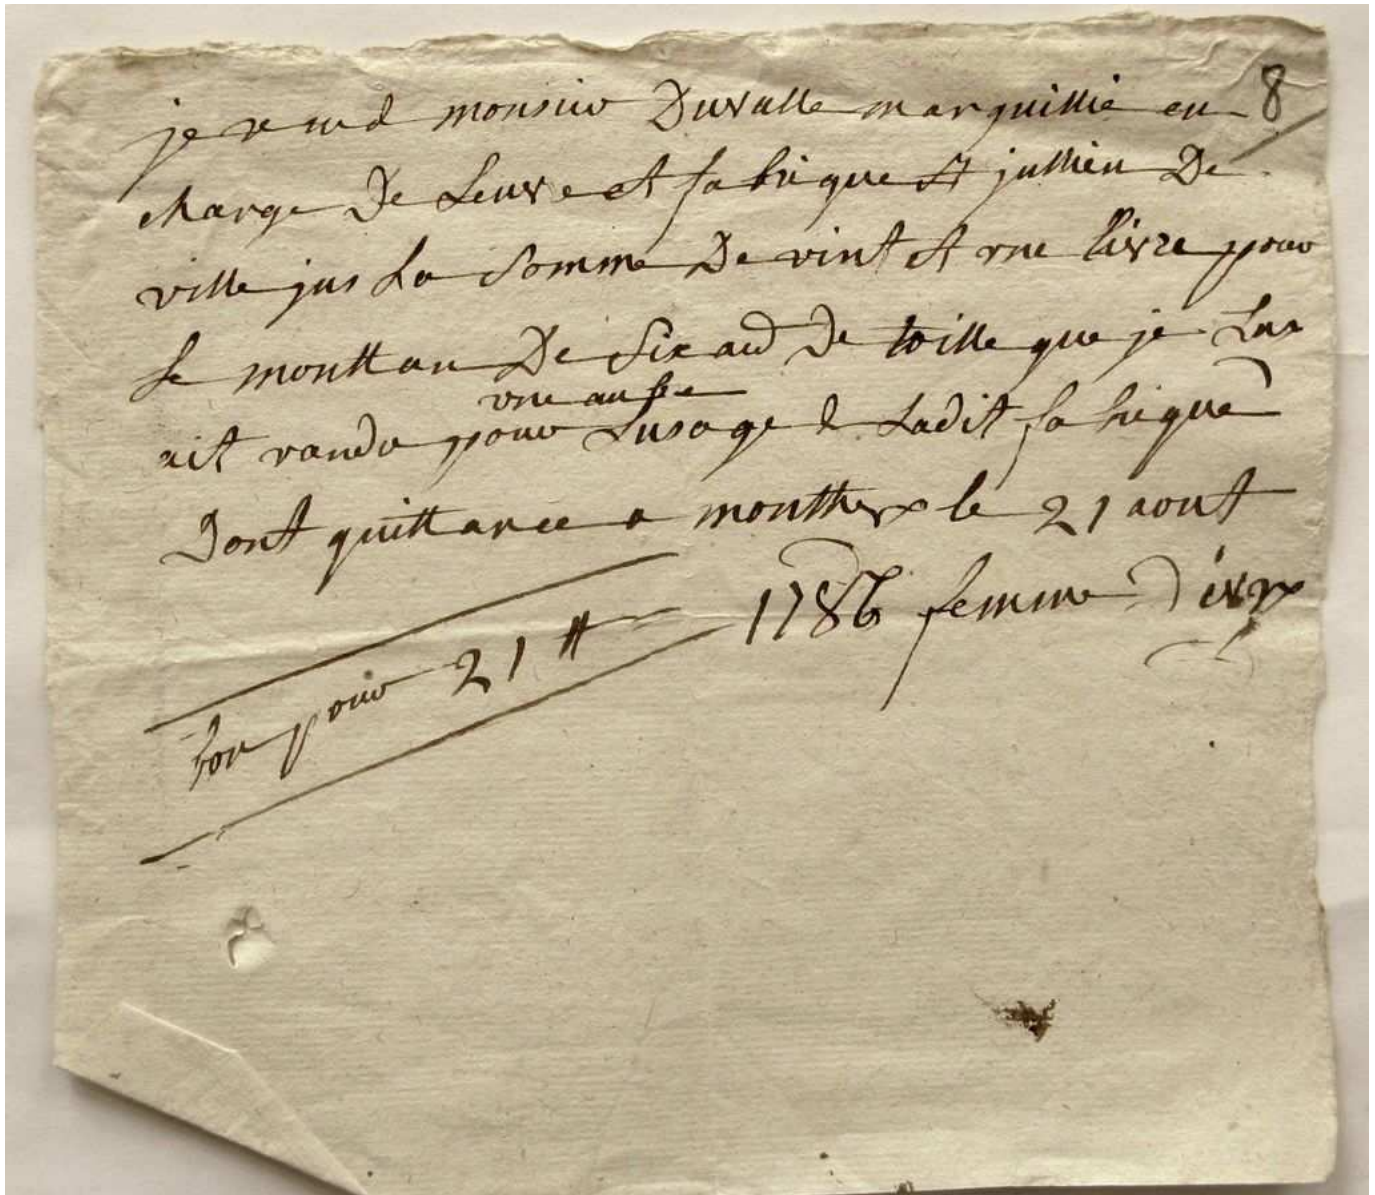 je … monsieur Duvalle marguillie en 8
charge De Leuvre et fabrique St jullien De
ville jus La Somme De vint et une livre pour
Le monttan De Six au… De toille que je Lux
ait vandu pour Lusage … Ladit fabrique
une aube
Dont quittance a … le 21 aout
1786 femme
bon pour 21 ₶